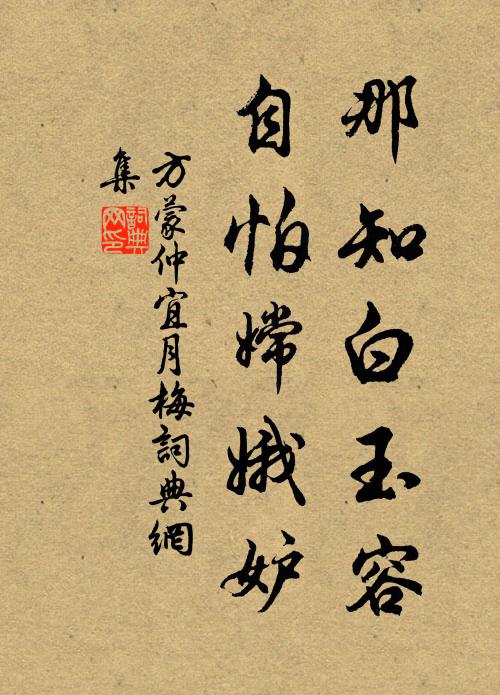 那知白玉容
自怕嫦娥妒
方蒙仲宜月梅詞典網
集
詞典
网印